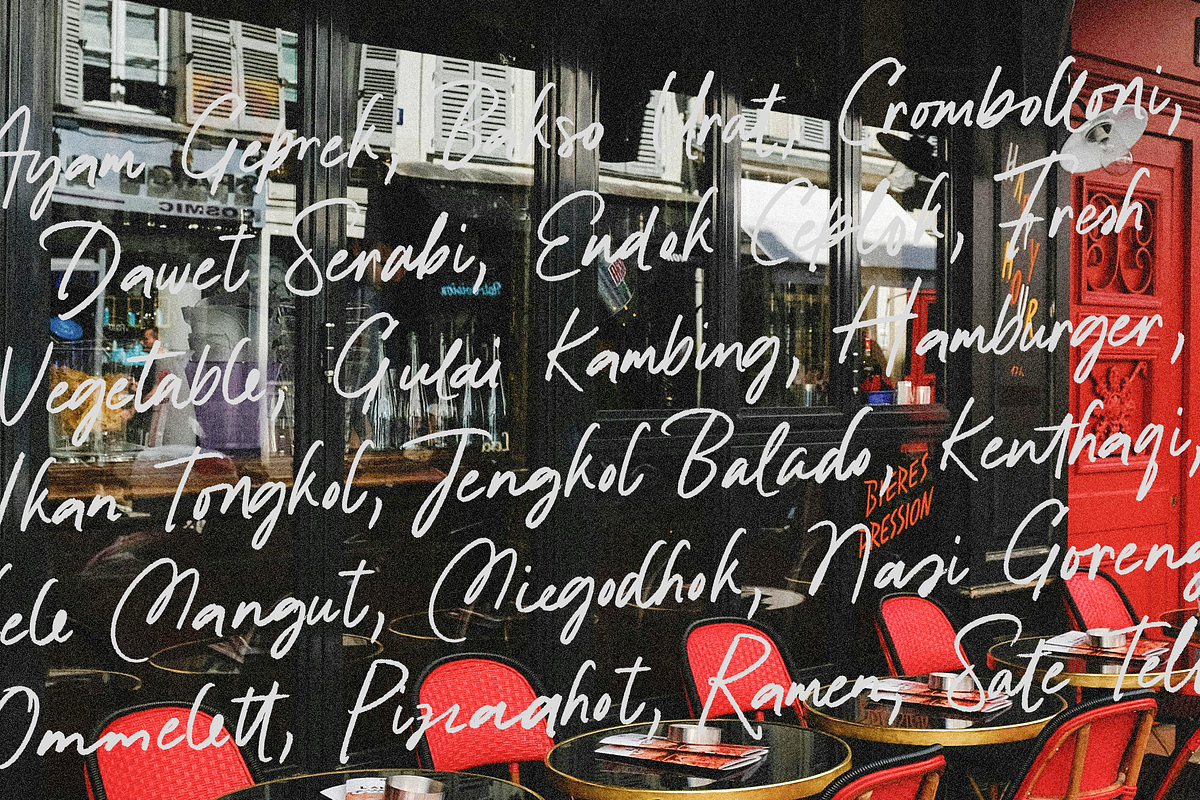 Ayam Geprek, Bakso Urat, Crombolloni,
Dawet Serabi, Endok Ceblok, Fresh
Vegetable, Gulai Kambing, Hamburger,
Ikan Tongkol, Jengkol Balado, Kenthaqi,
ele Mangut, Miegodhok, Nasi Goreng
Ommelett, Pizzaahot, Ramen, Sate Teli
COSMIC
HAPPY
HOUR
BIERES
PRESSION